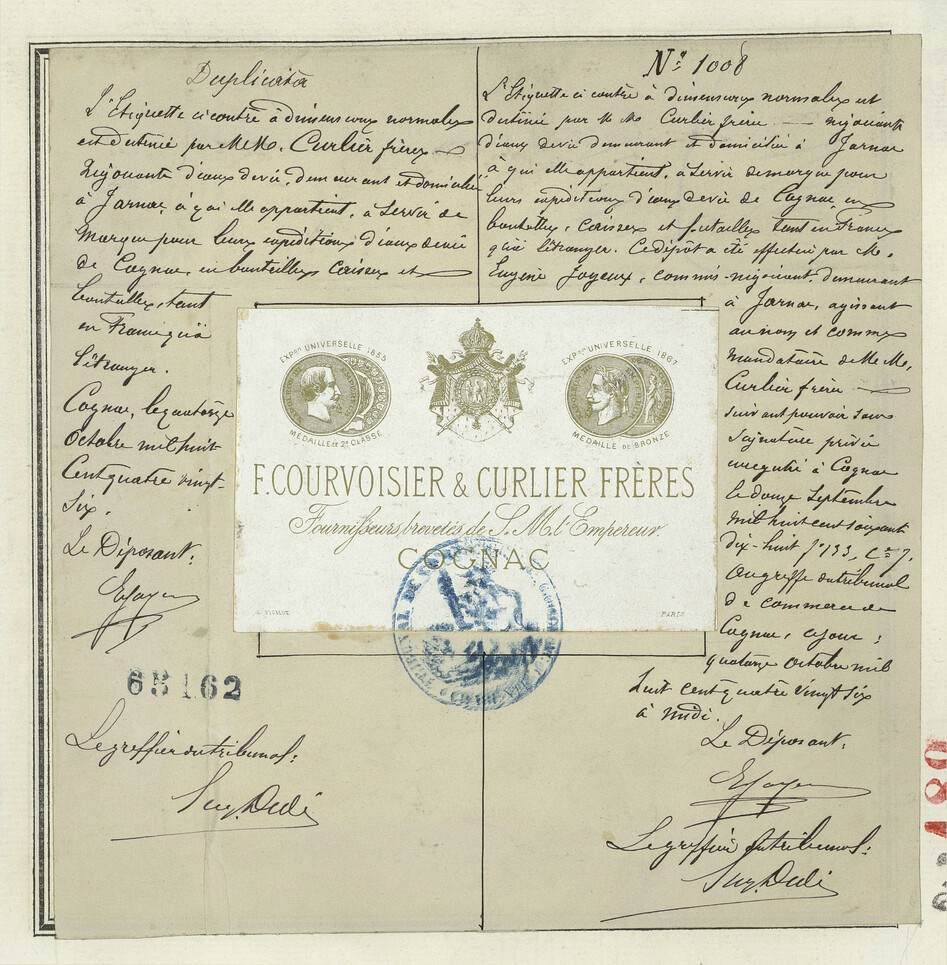 Duplicata
L'Etiquette ci contre à dimensions normales
est destinée par M.M. Curlier frères
Négociants d'eaux de vie, demeurant et domiciliés
à Jarnac, à qui elle appartient, à servir de
Marque pour leurs expéditions d'eaux de vie
de Cognac, en bouteilles caisses et
bouteilles, tant
en France qu'à
l'étranger.
Cognac, le quatorze
Octobre mil huit
Cent quatre vingt-
Six.
Le Déposant:
65162
Le greffier du tribunal:
N° 1008
L'Etiquette ci contre à dimensions normales est
destinée par M M. Curlier frères négociants
d'eaux de vie demeurant et domiciliés à Jarnac
à qui elle appartient, à servir de marque pour
leurs expéditions d'eaux de vie de Cognac, en
bouteilles, caisses et futailles tant en France
qu'à l'étranger. Ce dépôt a été effectué par M.
Eugène Joyeux, commis-négociant, demeurant
à Jarnac, agissant
au nom et comme
mandataire de M.M.
Curlier frères
suivant pouvoir sous
signature privée
enregistré à Cognac
le douze Septembre
mil huit cent soixante
dix-huit f° 133, C° 7,
au greffe du tribunal
de commerce de
Cognac, ce jour:
quatorze octobre mil
huit cent quatre vingt six
à midi.
Le Déposant:
Le greffier du tribunal:
EXPON UNIVERSELLE 1855
MÉDAILLE DE 2E CLASSE
EXPON UNIVERSELLE 1867
MÉDAILLE DE BRONZE
F. COURVOISIER & CURLIER FRÈRES
Fournisseurs brevetés de S. M. l'Empereur.
COGNAC
PARIS